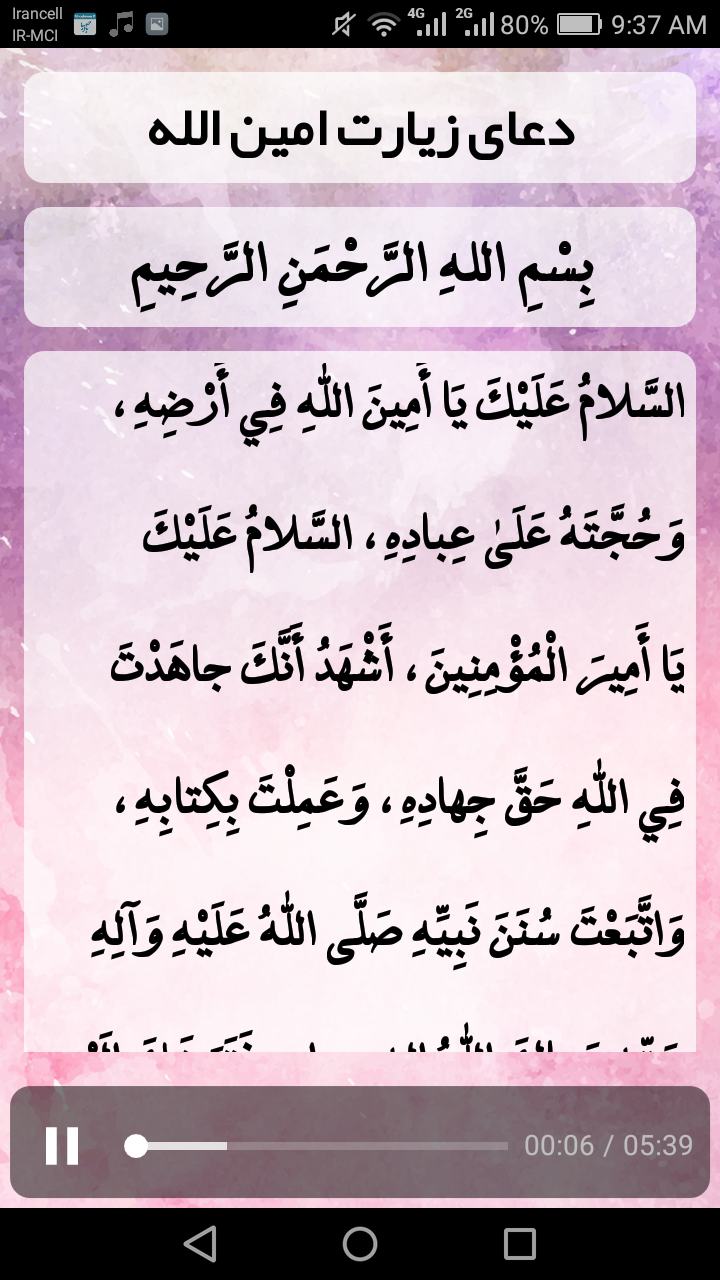 Irancell
IR-MCI
4G
2G
80%
9:37 AM
دعای زیارت امین الله
بِسْمِ اللهِ الرَّحْمَنِ الرَّحِيمِ
السَّلامُ عَلَيْكَ يَا أَمِينَ اللّٰهِ فِي أَرْضِهِ ،
وَحُجَّتَهُ عَلَىٰ عِبادِهِ ، السَّلامُ عَلَيْكَ
يَا أَمِيرَ الْمُؤْمِنِينَ ، أَشْهَدُ أَنَّكَ جاهَدْتَ
فِي اللّٰهِ حَقَّ جِهادِهِ ، وَعَمِلْتَ بِكِتابِهِ ،
وَاتَّبَعْتَ سُنَنَ نَبِيِّهِ صَلَّى اللّٰهُ عَلَيْهِ وَآلِهِ
00:06 / 05:39